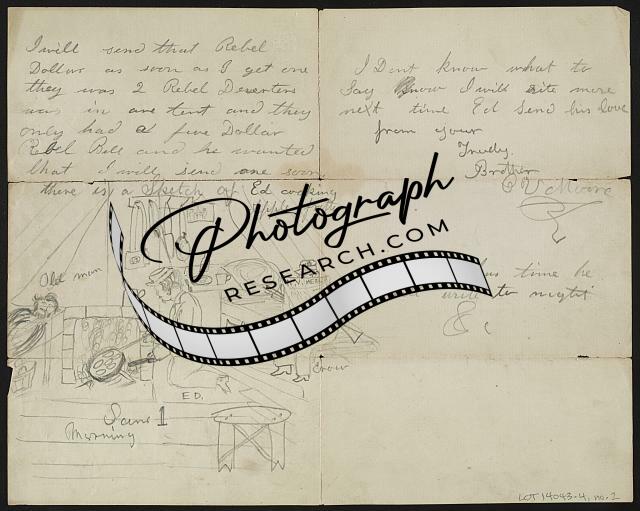 I will send that Rebel
Dollar as soon as I get one
they was 2 Rebel Deserters
was in our tent and they
only had a five Dollar
Rebel Bill and he wanted
that I will send one soon
there is a Sketch of Ed cooking
I Dont know what to
Say know I will rite more
next time Ed Send his love
from your
Truely
Brother
time he
to night
&c
Old man
ED.
Jan 1
Morning
Photograph
RESEARCH.COM
LOT 14043-4, no. 2